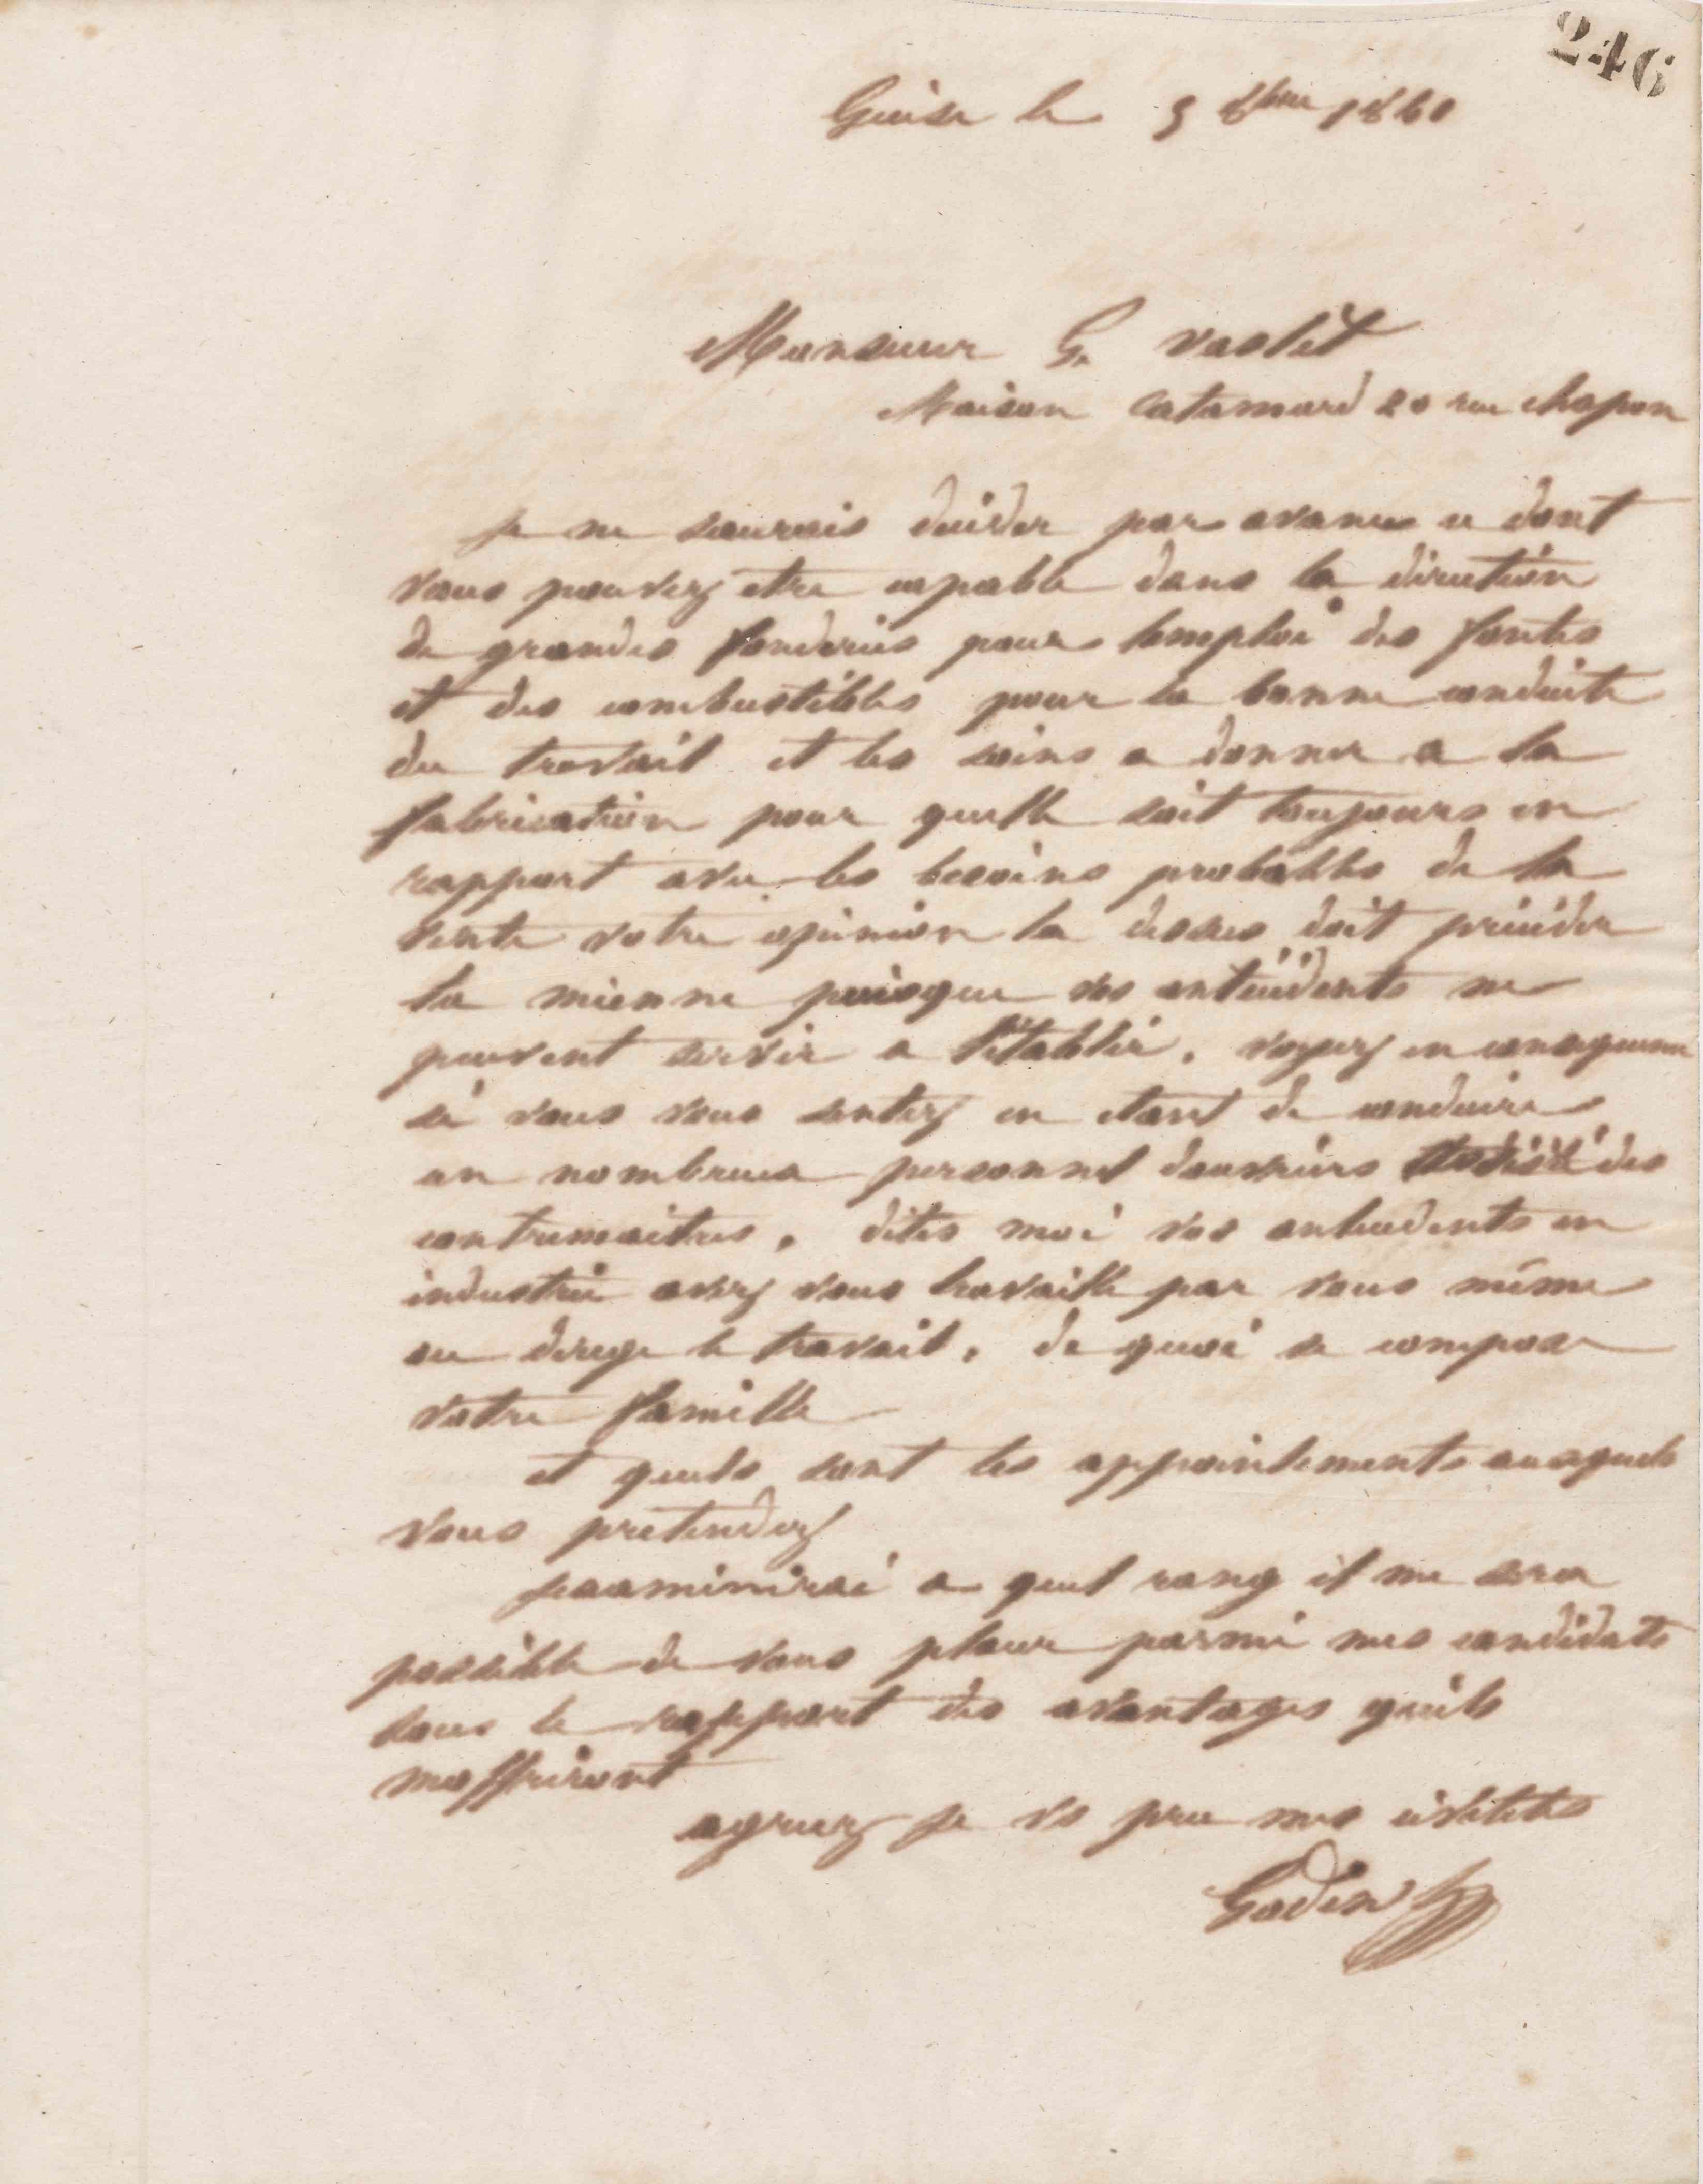 246
Guise le 5 8bre 1860
Monsieur G. Vaslet
Maison Catamard 20 rue chapon
Je ne saurais décider par avance ce dont
vous pouvez etre capable dans la direction
de grandes fonderies pour lemploi des fontes
et des combustibles pour la bonne conduite
du travail et les soins a donner a la
fabrication pour quelle soit toujours en
rapport avec les besoins probables de la
vente votre opinion la dessus doit précéder
la mienne puisque vos antécédents ne
peuvent servir a l'établir. voyez en consequence
si vous vous sentez en etant de conduire
un nombreux personnel douvriers des
contremaitres. dites moi vos antecedents en
industrie avez vous travaille par vous même
ou dirige le travail. de quoi se compose
votre famille
et quels sont les appointements auxquels
vous pretendez
jexaminerai a quel rang il me sera
possible de vous placer parmi mes candidats
sous le rapport des avantages quils
moffriront
agreez je vs prie mes civilités
Godin